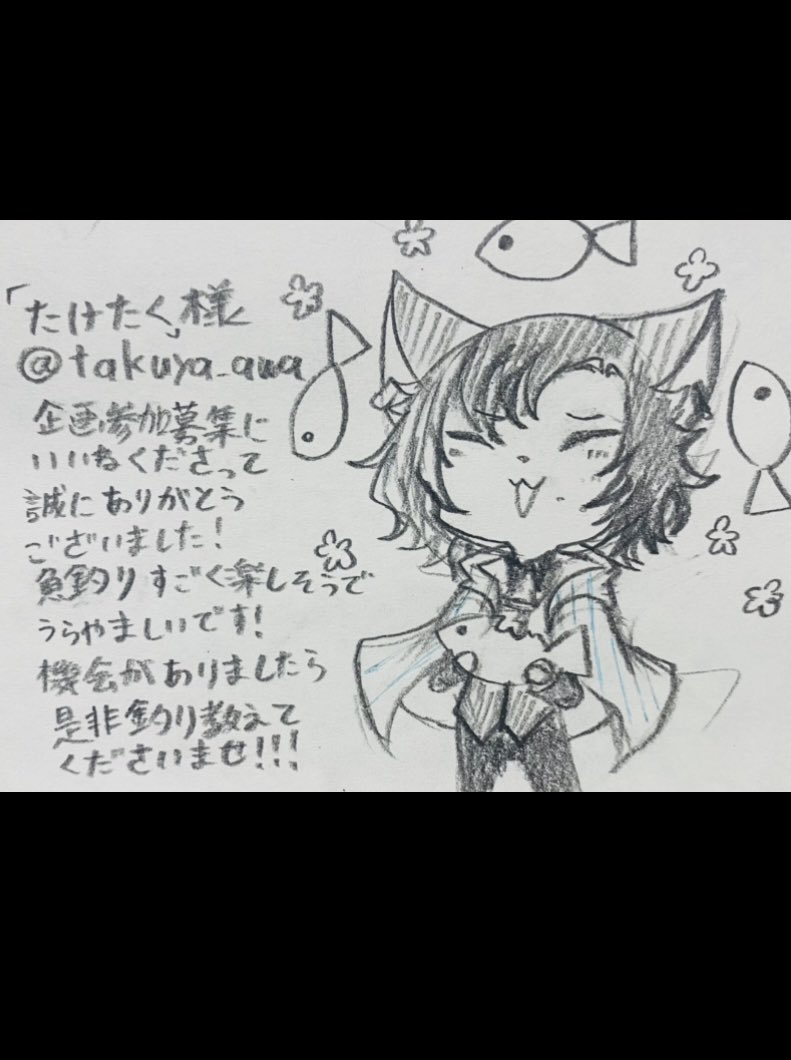 「たけたく」様
@takuya_awa
企画参加募集に
いいねくださって
誠にありがとう
ございました!
魚釣りすごく楽しそうで
うらやましいです!
機会がありましたら
是非釣り教えて
くださいませ!!!